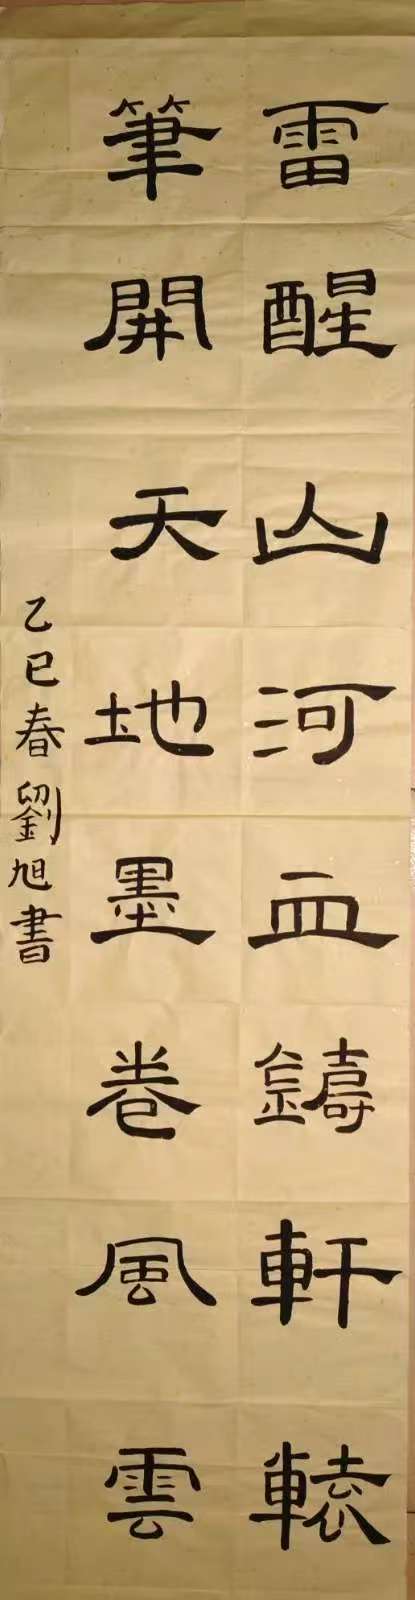 雷醒山河血鑄軒轅
筆開天地墨卷風雲
乙巳春劉旭書